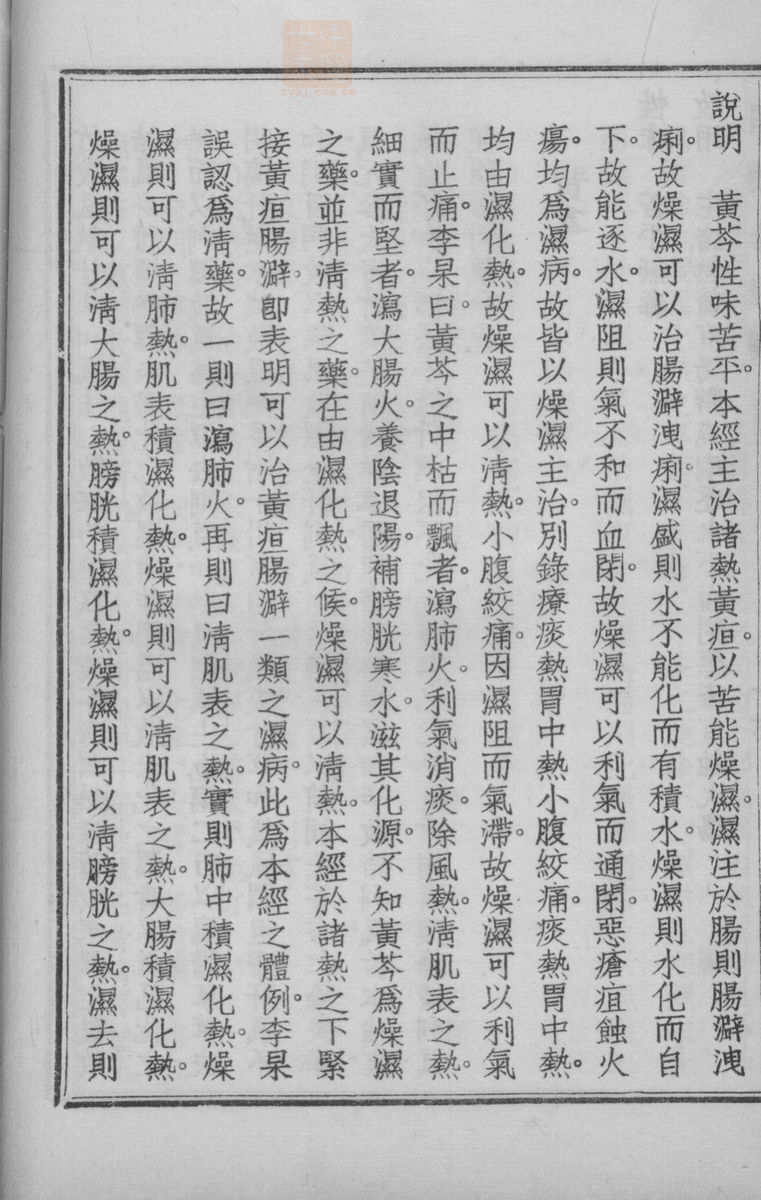 說明　黃芩性味苦平。本經主治諸熱黃疸。以苦能燥濕。濕注於腸則腸澼洩
痢。故燥濕可以治腸澼洩痢。濕盛則水不能化而有積水。燥濕則水化而自
下。故能逐水。濕阻則氣不和而血閉。故燥濕可以利氣而通閉。惡瘡疽蝕火
瘍。均爲濕病。故皆以燥濕主治。別錄療痰熱胃中熱小腹絞痛。痰熱胃中熱。
均由濕化熱。故燥濕可以淸熱。小腹絞痛。因濕阻而氣滯。故燥濕可以利氣
而止痛。李杲曰。黃芩之中枯而飄者。瀉肺火。利氣消痰。除風熱。淸肌表之熱。
細實而堅者。瀉大腸火。養陰退陽。補膀胱寒水。滋其化源。不知黃芩爲燥濕
之藥。並非淸熱之藥。在由濕化熱之候。燥濕可以淸熱。本經於諸熱之下緊
接黃疸腸澼。卽表明可以治黃疸腸澼一類之濕病。此爲本經之體例。李杲
誤認爲淸藥。故一則曰瀉肺火。再則曰淸肌表之熱。實則肺中積濕化熱。燥
濕則可以淸肺熱。肌表積濕化熱。燥濕則可以淸肌表之熱。大腸積濕化熱。
燥濕則可以淸大腸之熱。膀胱積濕化熱。燥濕則可以淸膀胱之熱。濕去則
zysj.com.cn